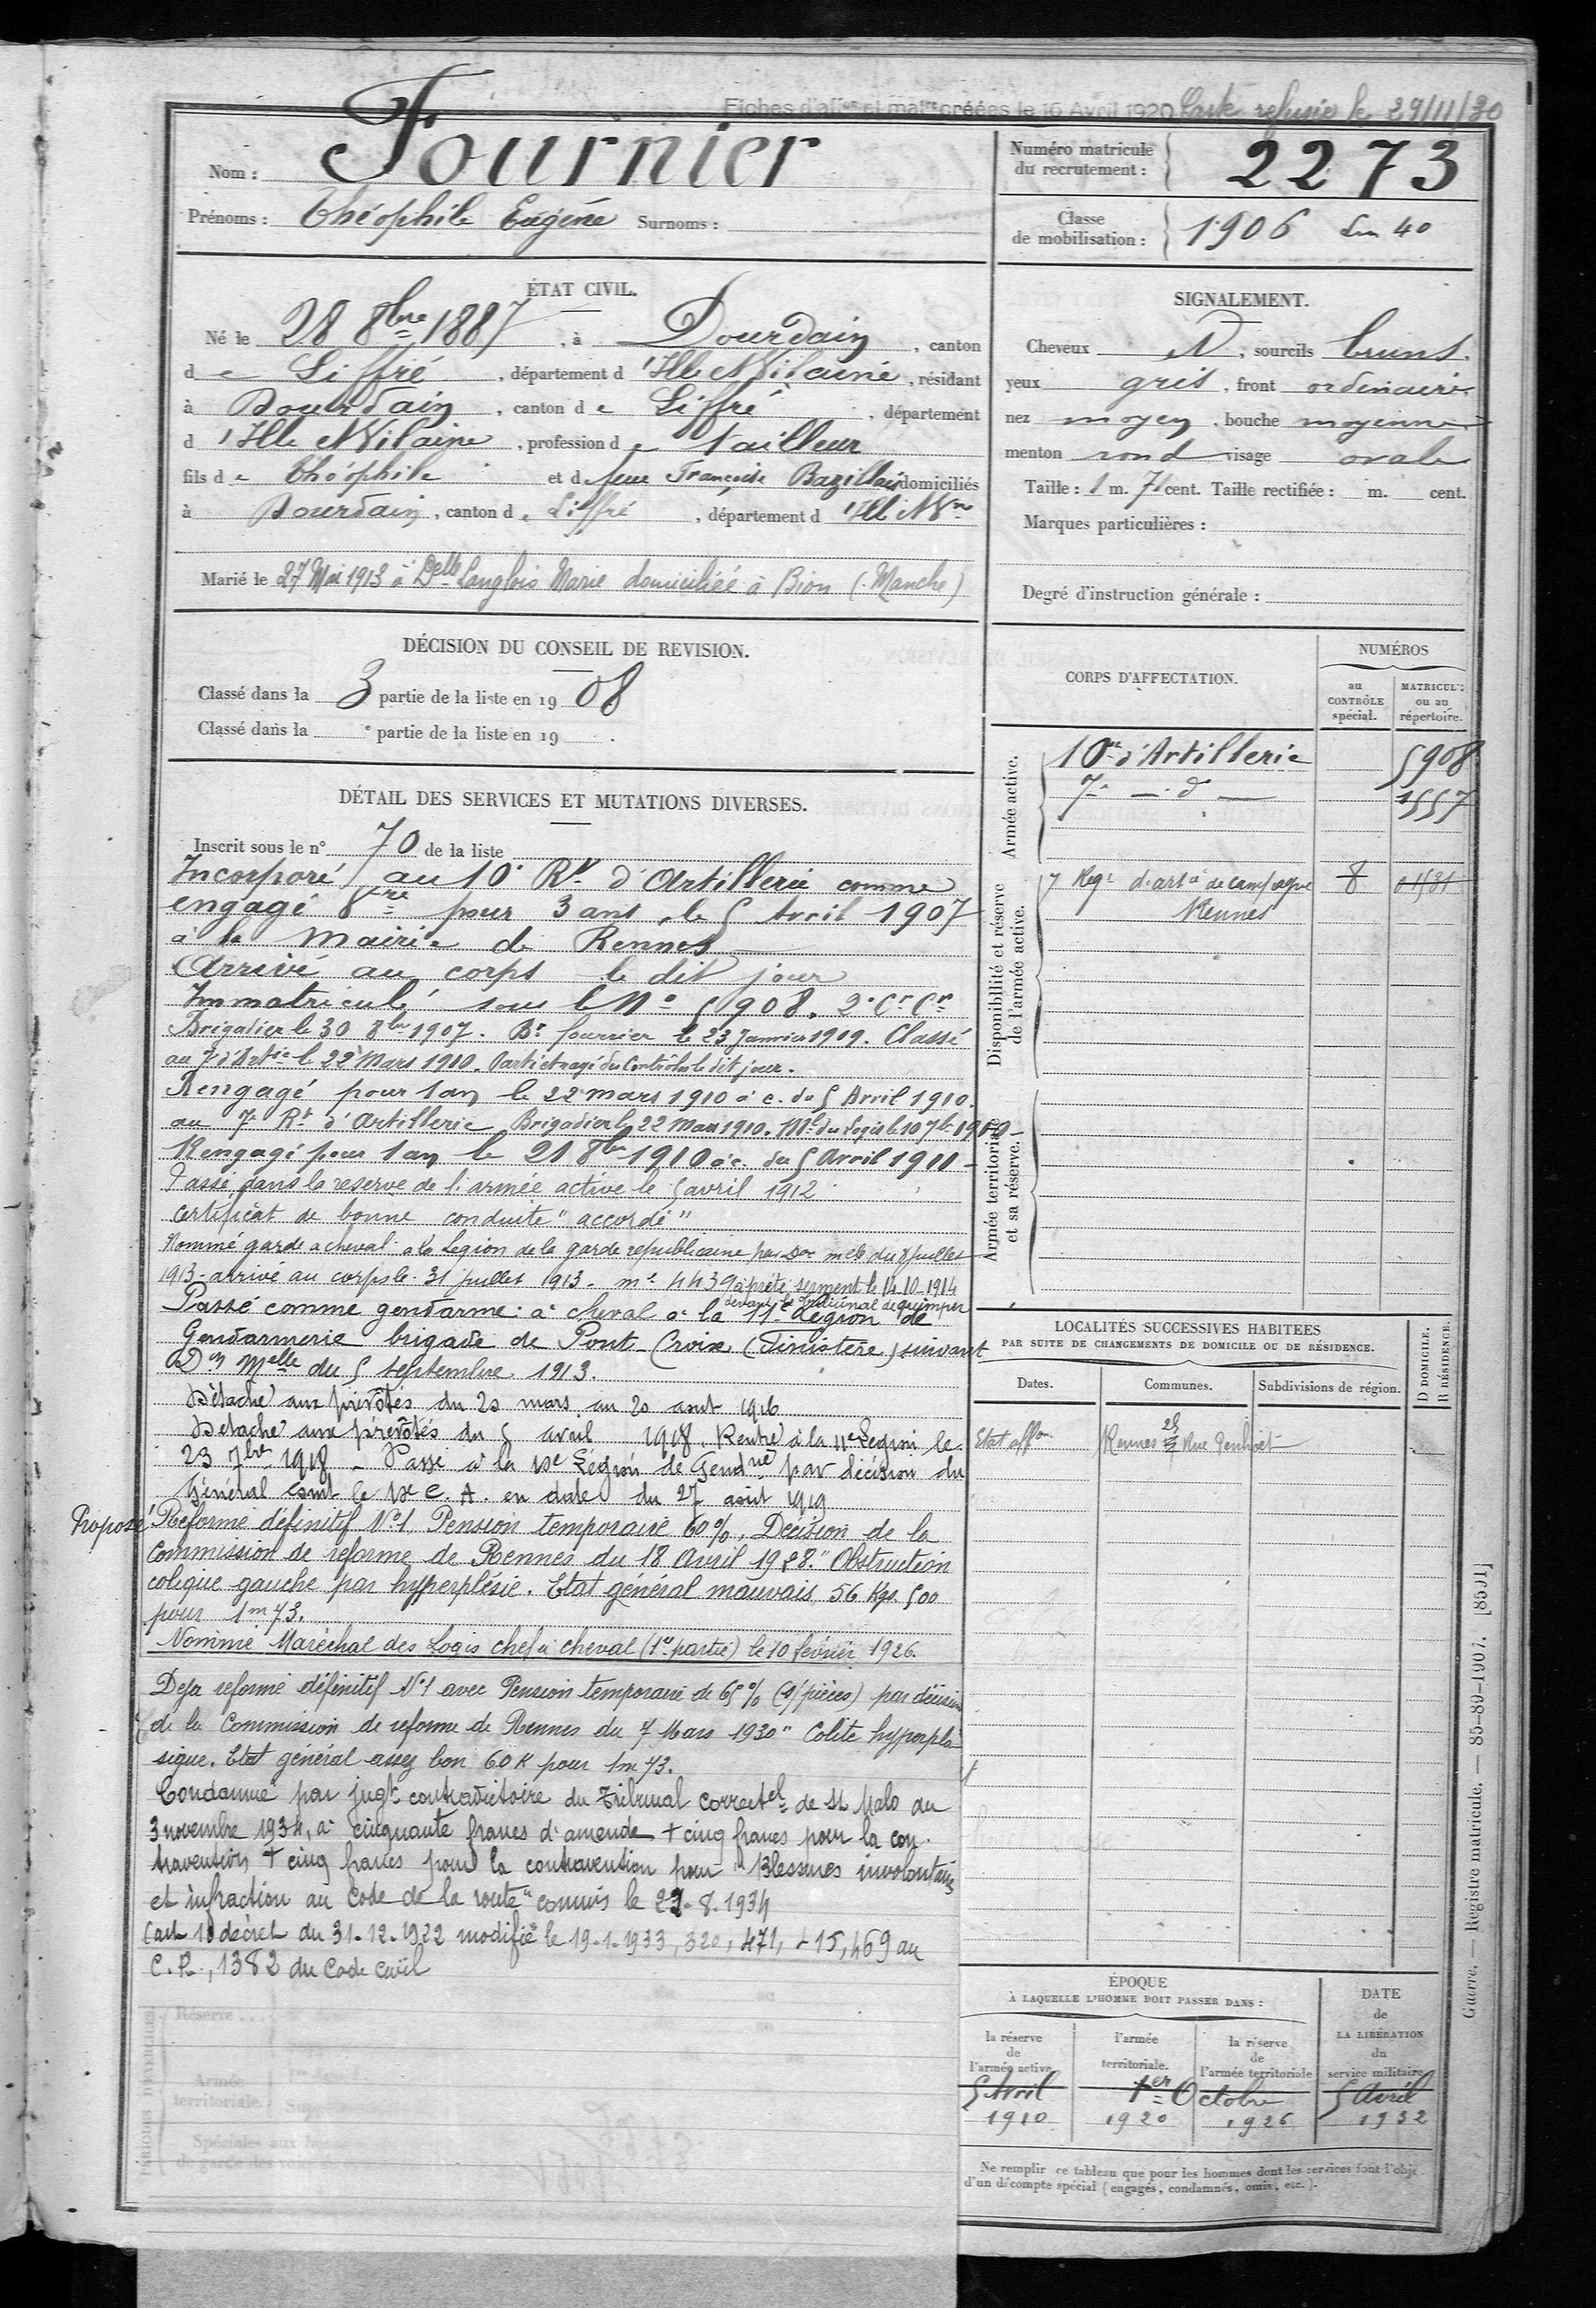 Fiches d'aff^on et mat^re créées le 16 Avril 1920 Carte refusée le 29/11/30
Nom : Fournier
Prénoms : Théophile Eugène Surnoms :
Numéro matricule du recrutement : 2273
Classe de mobilisation : 1906 40
ÉTAT CIVIL.
Né le 28 8bre 1887, à Dourdain, canton
de Liffré, département d'Ille & Vilaine, résidant
à Dourdain, canton de Liffré, département
d'Ille & Vilaine, profession de tailleur
fils de Théophile et de feue Françoise Bazillais domiciliés
à Dourdain, canton de Liffré, département d'Ille & Vne
Marié le 27 Mai 1913 à Delle Langlois Marie domiciliée à Bion (Manche)
SIGNALEMENT.
Cheveux N, sourcils bruns.
yeux gris, front ordinaire
nez moyen, bouche moyenne
menton rond visage ovale
Taille : 1 m. 71 cent. Taille rectifiée : m. cent.
Marques particulières :
Degré d'instruction générale :
DÉCISION DU CONSEIL DE REVISION.
Classé dans la 3 partie de la liste en 1908
Classé dans la e partie de la liste en 19 .
DÉTAIL DES SERVICES ET MUTATIONS DIVERSES.
Inscrit sous le n° 70 de la liste
Incorporé au 10e Rt d'Artillerie comme
engagé Vre pour 3 ans, le 5 Avril 1907
à la Mairie de Rennes
Arrivé au corps le dit jour
Immatriculé sous le No 5908. 2e Cr Cr
Brigadier le 30 8bre 1907. Br fourrier le 23 Janvier 1909. Classé
au 7 d'Artie le 22 Mars 1910. Parti et rayé des Contrôles le dit jour.
Rengagé pour 1 an le 22 mars 1910 à c. du 5 Avril 1910.
au 7e Rt d'Artillerie Brigadier le 22 Mars 1910. Mal des Logis le 10 7bre 1910
Rengagé pour 1 an le 21 8bre 1910 à c. du 5 Avril 1911
Passé dans la reserve de l'armée active le 5 avril 1912
certificat de bonne conduite "accordé"
Nommé garde à cheval à la Légion de la garde republicaine par Don mlle du 8 juillet
1913. arrivé au corps le 31 juillet 1913. mle 4439 a prêté serment le 14-10-1914
devant le tribunal de quimper
Passé comme gendarme à cheval à la 11e Légion de
Gendarmerie brigade de Pont-Croix (Finistère) suivant
Don Melle du 5 septembre 1913.
Détaché aux prévôtés du 20 mars au 20 aout 1916
Détaché aux prévôtés du 5 avril 1918. Rentré à la 11e Légion le
23 7bre 1918 - Passé à la 10e Légion de Gendrie par décision du
Général Comt le IXe C. A. en date du 27 août 1919
Proposé Réforme définitif No 1 Pension temporaire 60%, Décision de la
Commission de reforme de Rennes du 18 Avril 1928. "Obstruction
colique gauche par hyperplésie. Etat général mauvais 56 Kgs. 500
pour 1m73.
Nommé Maréchal des Logis chef à cheval (1re partie) le 10 février 1926.
Déjà reformé définitif No 1 avec Pension temporaire de 65% (s/pièces) par décision
de la Commission de reforme de Rennes du 7 Mars 1930 "Colite hyperpla
sique. Etat général assez bon 60 K pour 1m73.
Condamné par jugt contradictoire du Tribunal correctel de St Malo du
3 novembre 1934, à cinquante francs d'amende + cinq francs pour la con-
travention + cinq francs pour la contravention pour "Blessures involontaires
et infraction au code de la route" commis le 27.8.1934
(art 10 décret du 31.12.1922 modifié le 19.1.1933, 320, 471, + 15, 469 au
C. P., 1382 du Code Civil
Réserve ...
Armée territoriale.
Spéciales aux
CORPS D'AFFECTATION.
NUMÉROS
au CONTRÔLE spécial.
MATRICULE ou au répertoire.
Armée active.
10e d'Artillerie 5908
7e — d — 1557
Disponibilité et réserve de l'armée active.
7 Regt d'artie de campagne 8
Rennes
Armée territoriale et sa réserve.
LOCALITÉS SUCCESSIVES HABITÉES
PAR SUITE DE CHANGEMENTS DE DOMICILE OU DE RÉSIDENCE.
Dates. Communes. Subdivisions de région. D DOMICILE. R RÉSIDENCE.
Etat affon Rennes 25 Rue Penhoët
ÉPOQUE
À LAQUELLE L'HOMME DOIT PASSER DANS :
la réserve de l'armée active
l'armée territoriale.
la réserve de l'armée territoriale
DATE de LA LIBÉRATION du service militaire
5 Avril 1er Octobre 5 Avril
1910 1920 1926 1932
Ne remplir ce tableau que pour les hommes dont les services font l'objet
d'un décompte spécial (engagés, condamnés, omis, etc.).
Guerre. — Registre matricule. — 85-89-1907. [8501]